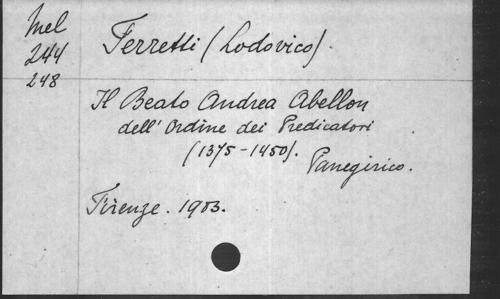 Mel
244
248
Ferretti (Lodovico).
Il Beato Andrea Abellon
dell' Ordine dei Predicatori
(1375-1450).
Panegirico.
Firenze. 1903.